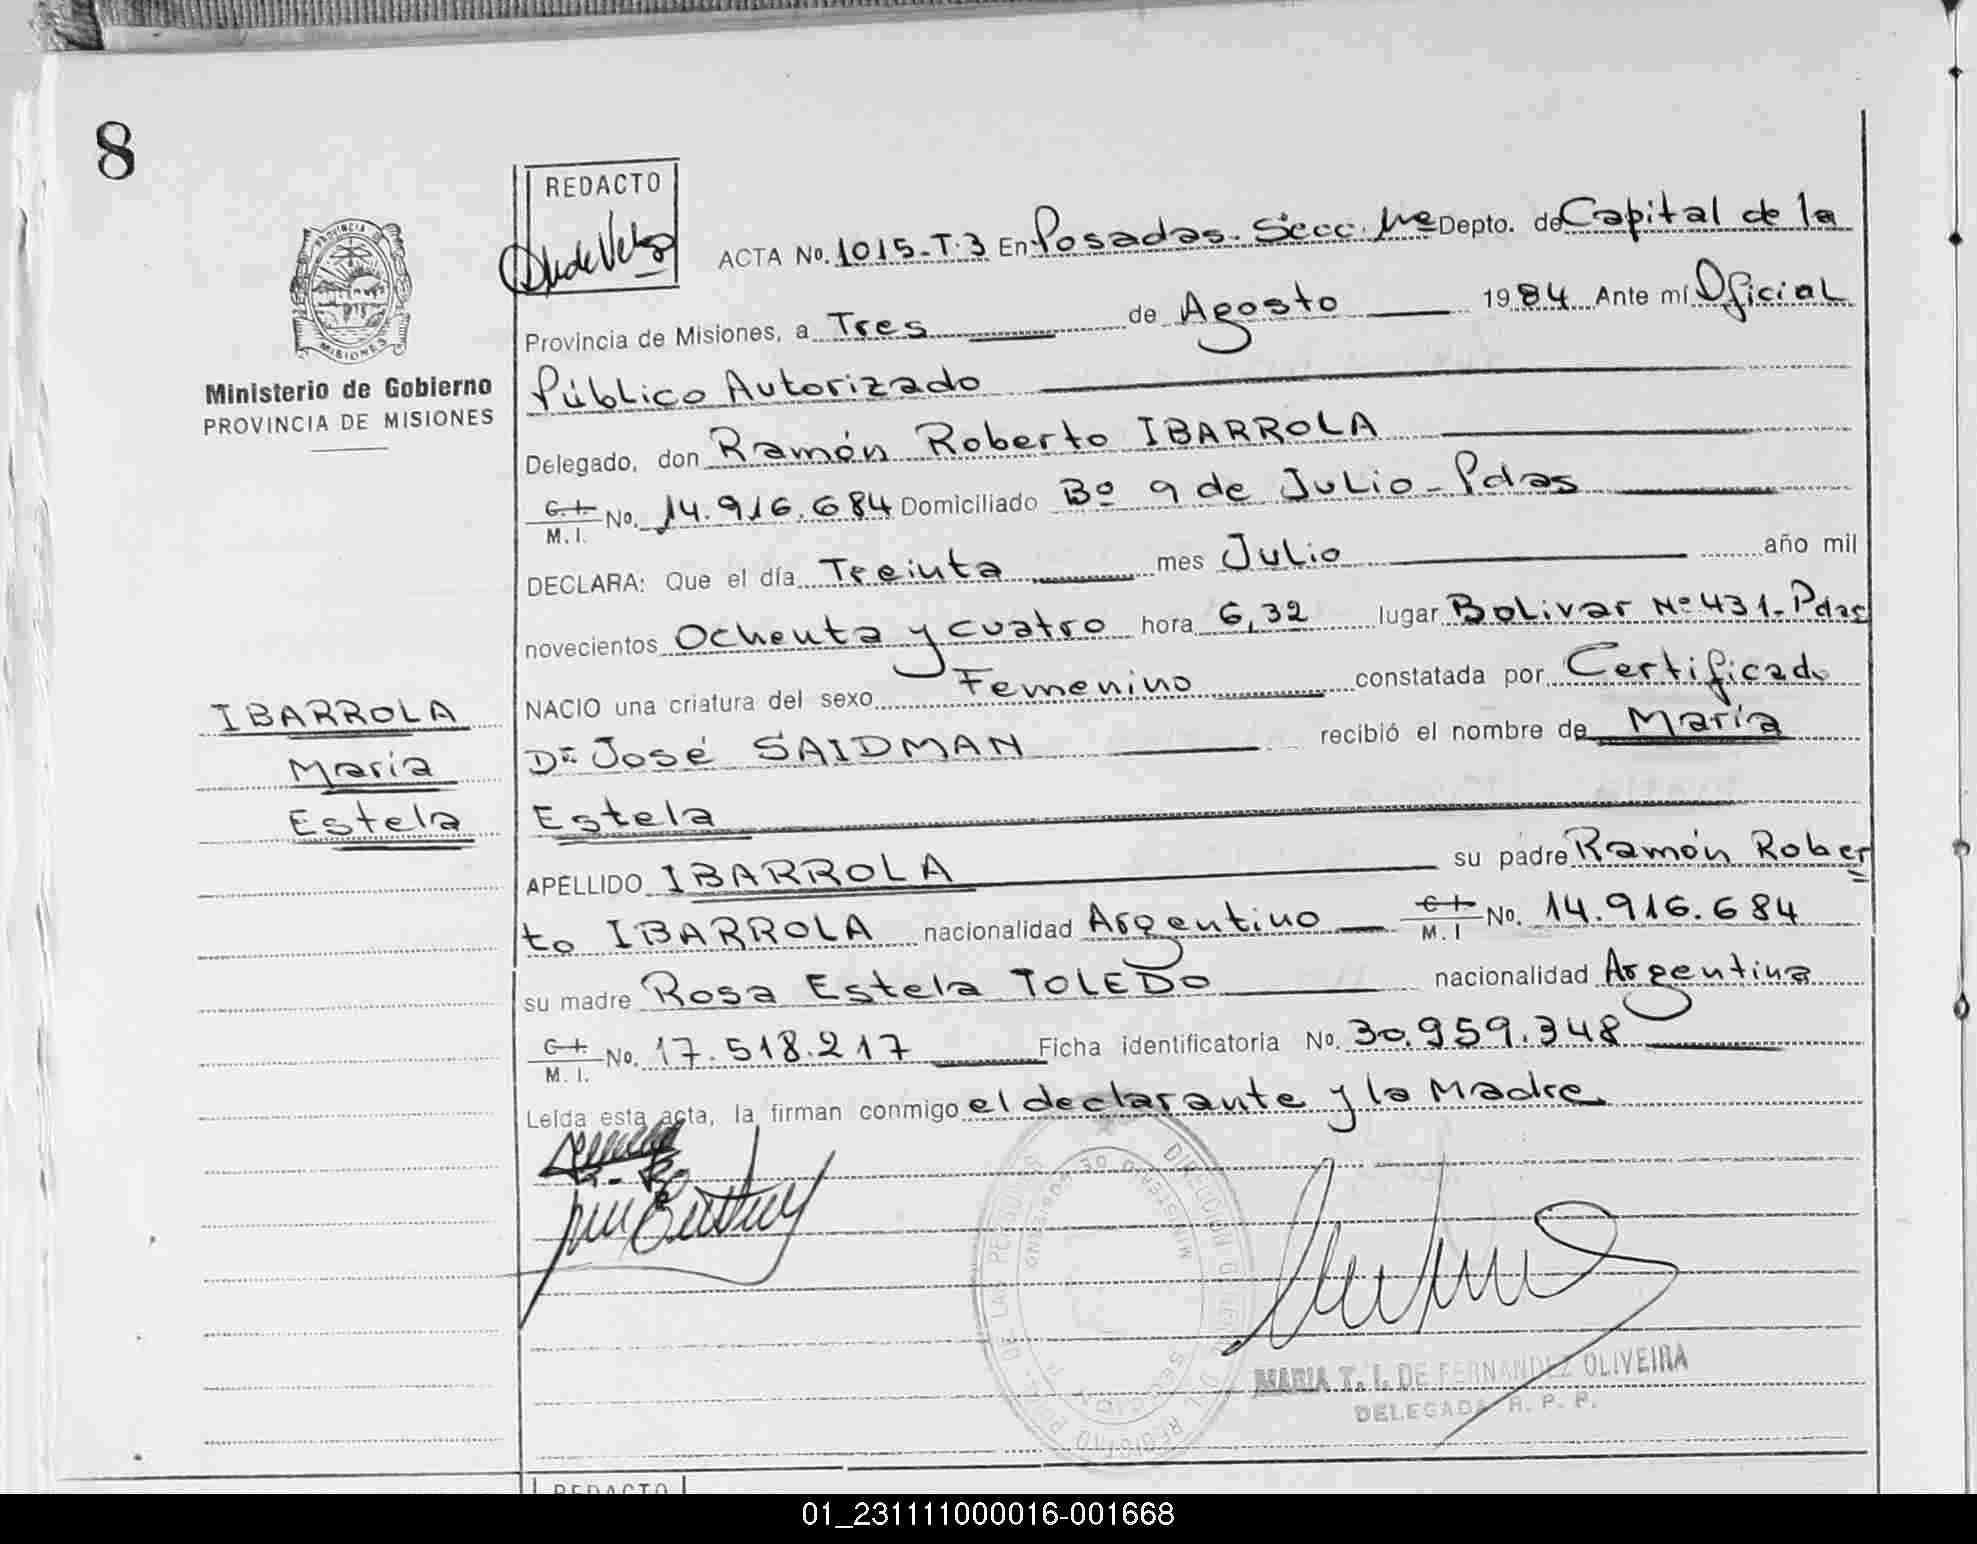 8
REDACTO
PROVINCIA DE
MISIONES
Ministerio de Gobierno
PROVINCIA DE MISIONES
ACTA No. 1015-T.3 En Posadas. Secc. 1ra Depto. de Capital de la
Provincia de Misiones, a Tres de Agosto 1984 Ante mí Oficial
Público Autorizado
Delegado, don Ramón Roberto IBARROLA
C.I. M.I. No. 14.916.684 Domiciliado Bº 9 de Julio - Pdas
DECLARA: Que el día Treinta mes Julio año mil
novecientos Ochenta y cuatro hora 6,32 lugar Bolivar Nº 431 - Pdas
NACIO una criatura del sexo Femenino constatada por Certificado
Dr José SAIDMAN recibió el nombre de María
Estela
APELLIDO IBARROLA su padre Ramón Rober
to IBARROLA nacionalidad Argentino C.I. M.I No. 14.916.684
su madre Rosa Estela TOLEDO nacionalidad Argentina
C.I. M.I. No. 17.518.217 Ficha identificatoria No. 30.959.348
Leída esta acta, la firman conmigo el declarante y la Madre
IBARROLA
María
Estela
MARIA T. I. DE FERNANDEZ OLIVEIRA
DELEGADA R. P. P.
REDACTO
01_231111000016-001668